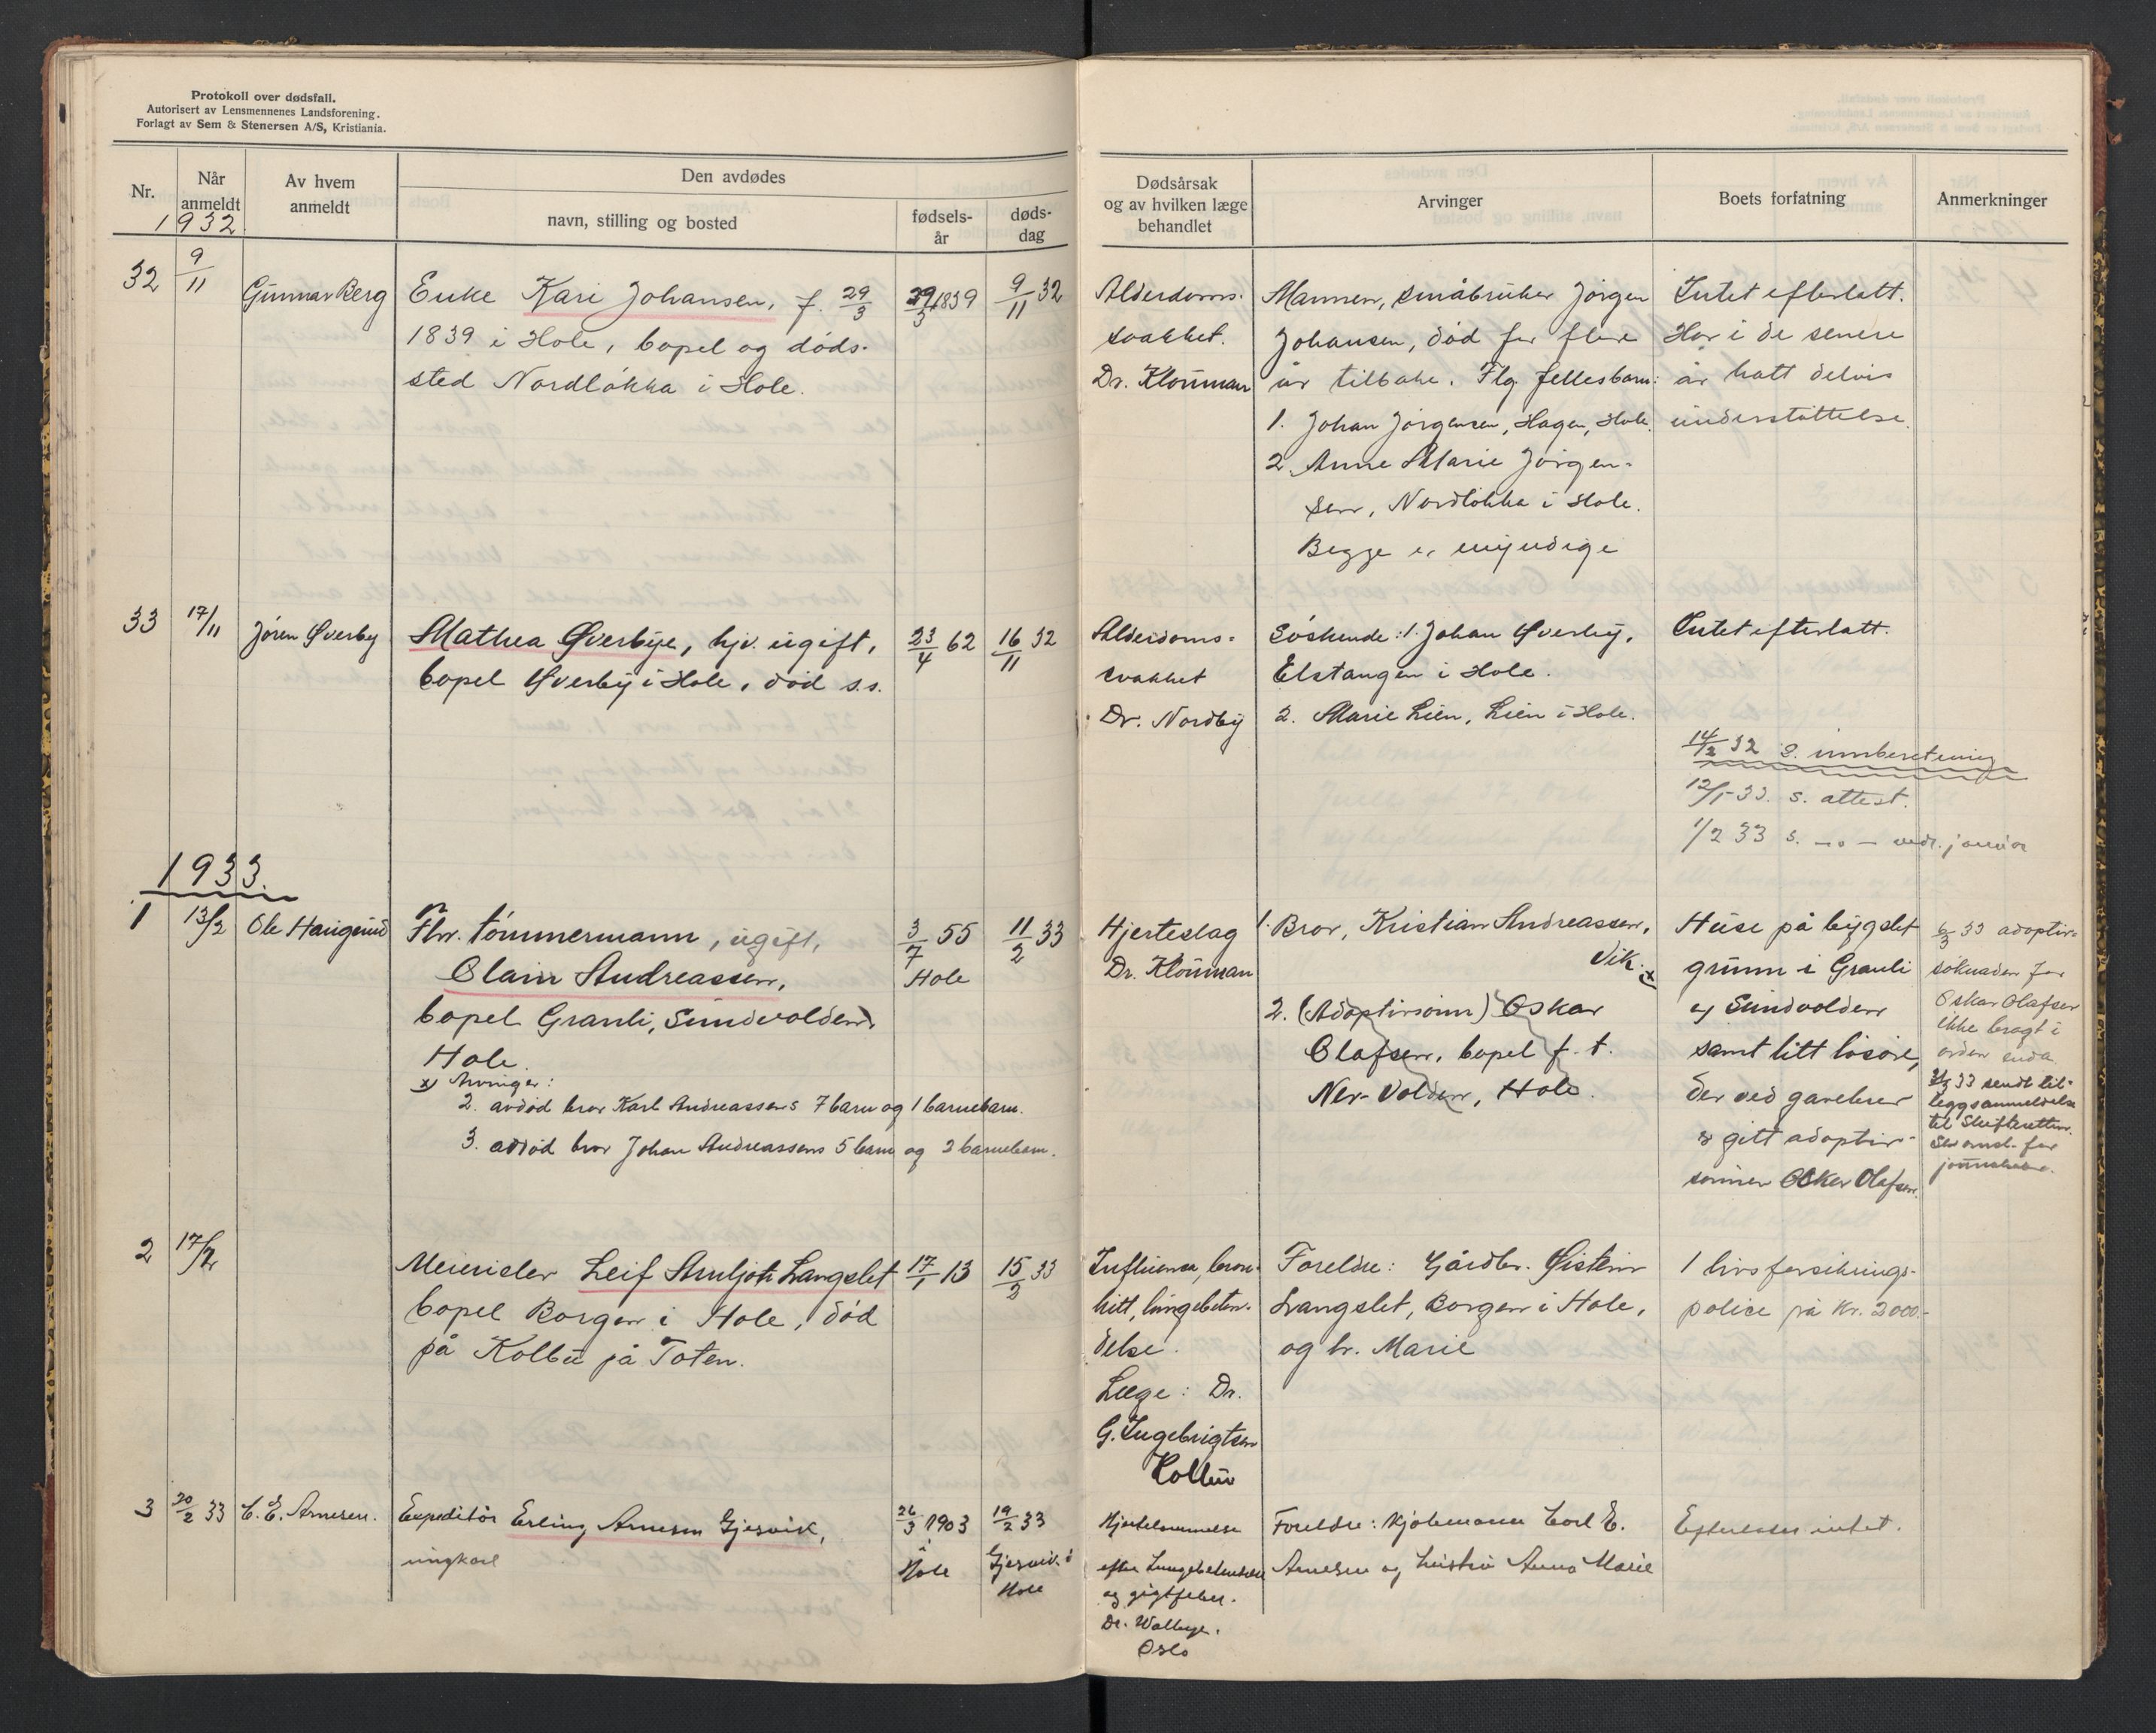 Protokoll over dødsfall.
Autorisert av Lensmennenes Landsforening.
Forlagt av Sem & Stenersen A/S, Kristiania.
Nr.
Når
anmeldt
1932
Av hvem
anmeldt
Den avdødes
navn, stilling og bosted
fødsels-
år
døds-
dag
Dødsårsak
og av hvilken læge
behandlet
Arvinger
Boets forfatning
Anmerkninger
32
9/11
Gunnar Berg
Enke Kari Johansen, f. 29/3
1839 i Hole, bopel og døds-
sted Nordløkka i Hole.
29/3 1839
9/11 32
Alderdoms-
svakhet.
Dr. Klouman
Mannen, småbruker Jørgen
Johansen, død for flere
år tilbake. Flg. fellesbarn:
1. Johan Jørgensen, Hagen, Hole.
2. Anne Marie Jørgen-
sen, Nordløkka i Hole.
Begge er myndige
Intet efterlatt.
Har i de senere
år hatt delvis
understøttelse.
33
17/11
Jøren Øverby
Mathea Øverbye, hjv. ugift,
bopel Øverby i Hole, død s.s.
23/4 62
16/11 32
Alderdoms-
svakhet
Dr. Nordby
Søskende: 1. Johan Øverby,
Elstangen i Hole.
2. Marie Lien, Lien i Hole.
Intet efterlatt.
14/12 32 s. innberetning
12/1-33. s. attest.
1/2 33 s. -"- vedr. januar
1933.
1
13/2
Ole Haugerud
Fhv. tømmermann, ugift,
Olaus Andreassen,
bopel Granli, Sundvolden,
Hole.
x) Arvinger:
2. avdød bror Karl Andreassens 7 barn og 1 barnebarn.
3. avdød bror Johan Andreassens 5 barn og 2 barnebarn.
3/7 55
Hole
11/2 33
Hjerteslag
Dr. Klouman
1. Bror, Kristian Andreassen,
Vik. x
2. (Adoptivsønn) Oskar
Olafsen, bopel f. t.
Ner-Volden, Hole.
Huse på bygslet
grunn i Granli
av Sundvolden
samt litt løsøre,
der ved gavebrev
er gitt adoptiv-
sønnen Oskar Olafsen.
6/3 33 adoptiv-
søknaden for
Oskar Olafsen
ikke bragt i
orden enda
33 sendt til-
leggsanmeldelse
til Skifteretten.
2
17/2
Meierielev Leif Arnljot Langslet
bopel Borgen i Hole, død
på Kolbu på Toten.
17/1 13
15/2 33
Influensa, bron-
kitt, lungebeten-
delse.
Læge: Dr.
G. Ingebrigtsen
Kolbu
Foreldre: Gårdbr. Øistein
Langslet, Borgen i Hole,
og hr. Marie
1 livsforsikrings-
police på kr. 2000.-
3
20/2 33
C. E. Arnesen.
Expeditør Erling Arnesen Gjesvik,
ungkarl
26/3 1903
Hole
19/2 33
Gjesvik i
Hole
Hjertelammelse
efter Lungebetendelse
og gigtfeber.
Dr. Wallage.
Oslo
Foreldre: Kjøbmann Carl E.
Arnesen og hustru Anna Marie
Efterlater intet.